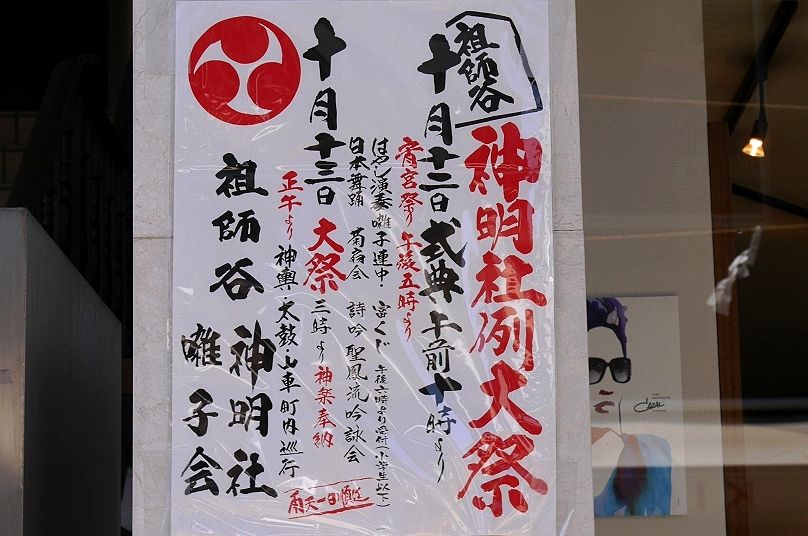 祖師谷
神明社例大祭
十月十二日 式典 午前十時より
宵宮祭り 午後五時より
はやし演奏 囃子連中・富くじ 午後六時より受付(小学生以下)
日本舞踊 菊宿会 詩吟 聖鳳流吟詠会
十月十三日 大祭 三時より 神楽奉納
正午より 神輿・太鼓・山車町内巡行
雨天一日順延
祖師谷神明社
囃子会
CAZAL